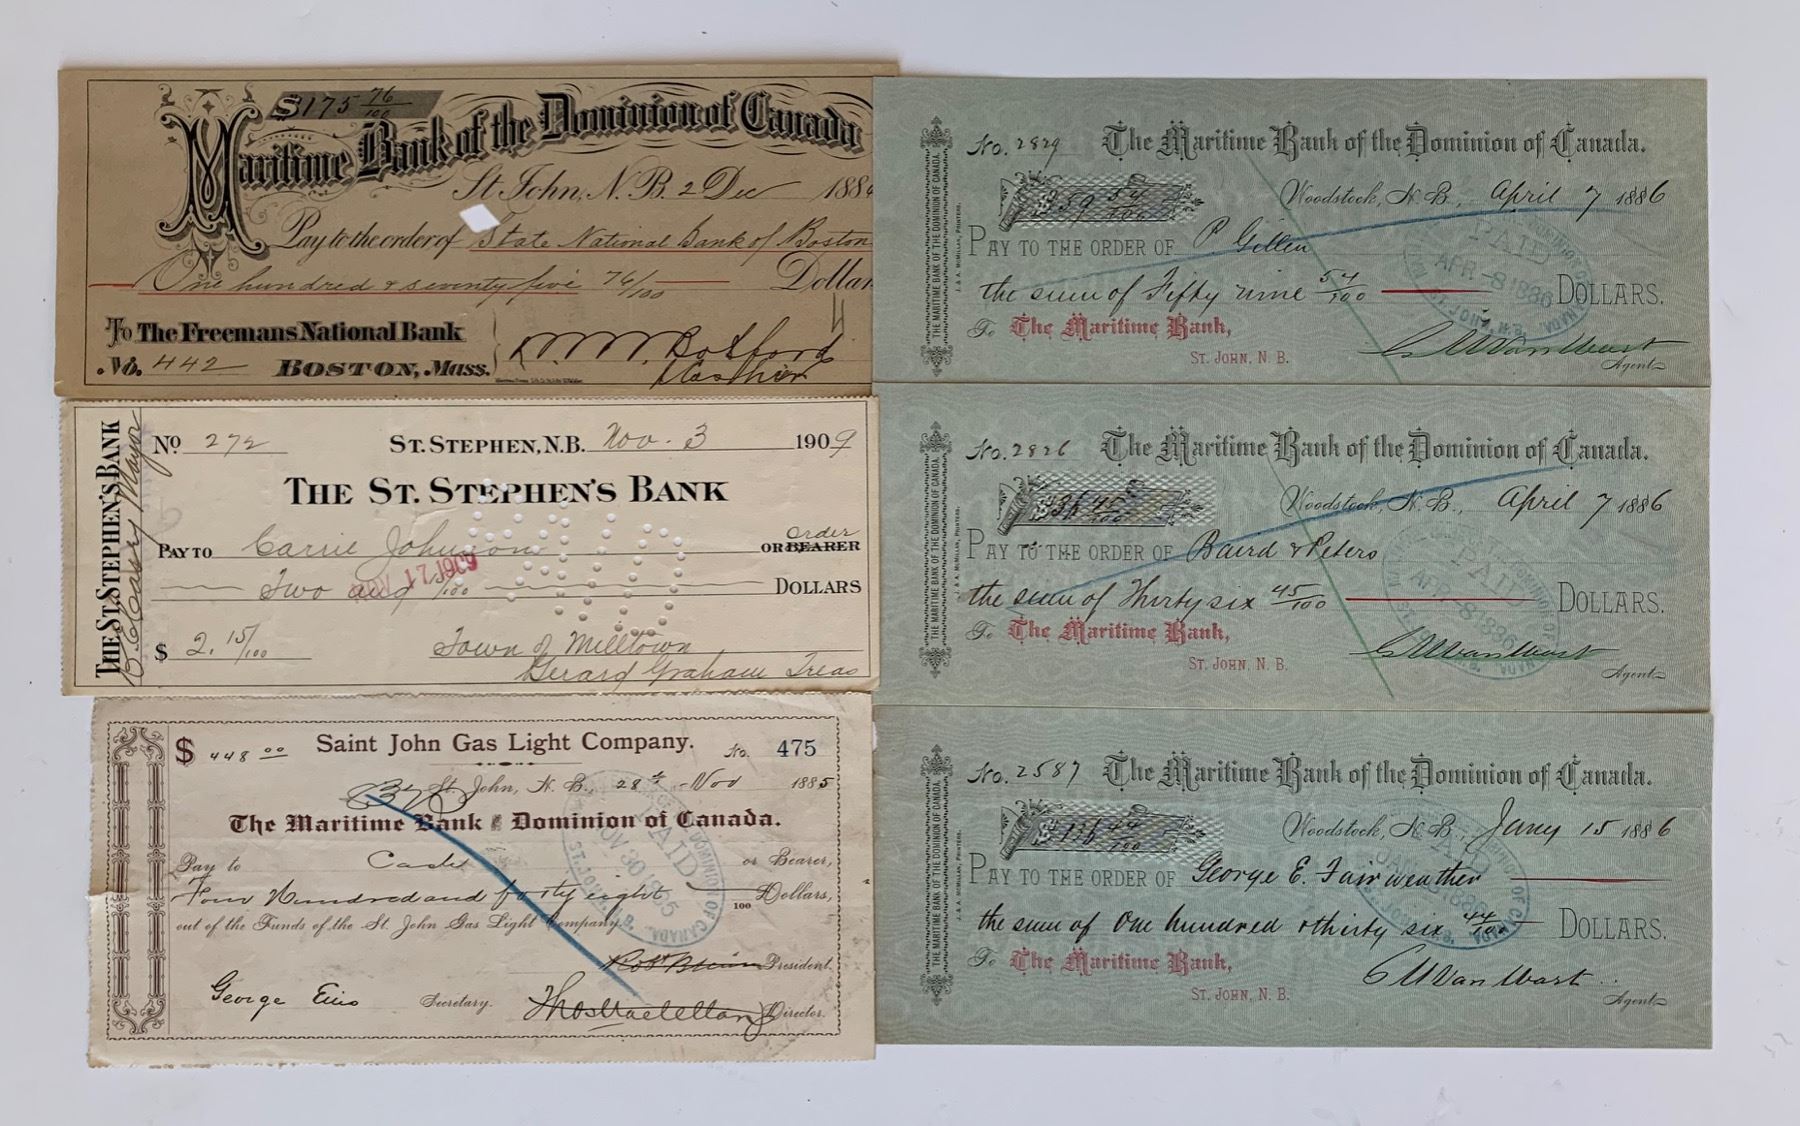 $175 76/100
Maritime Bank of the Dominion of Canada
St. John, N.B. 2 Dec 188
Pay to the order of State National Bank of Boston
One hundred & seventy five 76/100 Dollar
To The Freemans National Bank
No. 442 Boston, Mass.
Cashier
THE ST. STEPHEN'S BANK
Mayor
No 272 ST. STEPHEN, N.B. Nov. 3 1909
THE ST. STEPHEN'S BANK
PAY TO Carrie Johnson OR BEARER
Order
Two and 15/100 DOLLARS
$ 2.15/100 Town of Milltown
Gerard Graham Treas
$ 448 00 Saint John Gas Light Company. No. 475
St. John, N.B., 28th Nov 1885
The Maritime Bank of Dominion of Canada.
Pay to Cash or Bearer,
Four Hundred and forty eight /100 Dollars,
out of the Funds of the St. John Gas Light Company.
President.
George Secretary. Thos Maclellan Director.
PAID
NOV 30 1885
ST. JOHN, N.B.
THE MARITIME BANK OF THE DOMINION OF CANADA.
J. & A. McMILLAN, PRINTERS.
No. 2829 The Maritime Bank of the Dominion of Canada.
$59 54/100 Woodstock, N.B., April 7 1886
PAY TO THE ORDER OF P Gillen
the sum of Fifty nine 54/100 DOLLARS.
To The Maritime Bank,
ST. JOHN, N.B.
Agent
PAID
APR -8 1886
THE MARITIME BANK OF THE DOMINION OF CANADA.
J. & A. McMILLAN, PRINTERS.
No. 2826 The Maritime Bank of the Dominion of Canada.
$36 45/100 Woodstock, N.B., April 7 1886
PAY TO THE ORDER OF Baird & Peters
the sum of Thirty six 45/100 DOLLARS.
To The Maritime Bank,
ST. JOHN, N.B.
Agent
PAID
APR -8 1886
THE MARITIME BANK OF THE DOMINION OF CANADA.
J. & A. McMILLAN, PRINTERS.
No. 2587 The Maritime Bank of the Dominion of Canada.
$136 44/100 Woodstock, N.B., Jany 15 1886
PAY TO THE ORDER OF George E. Fairweather
the sum of One hundred & thirty six 44/100 DOLLARS.
To The Maritime Bank,
ST. JOHN, N.B.
Agent
PAID